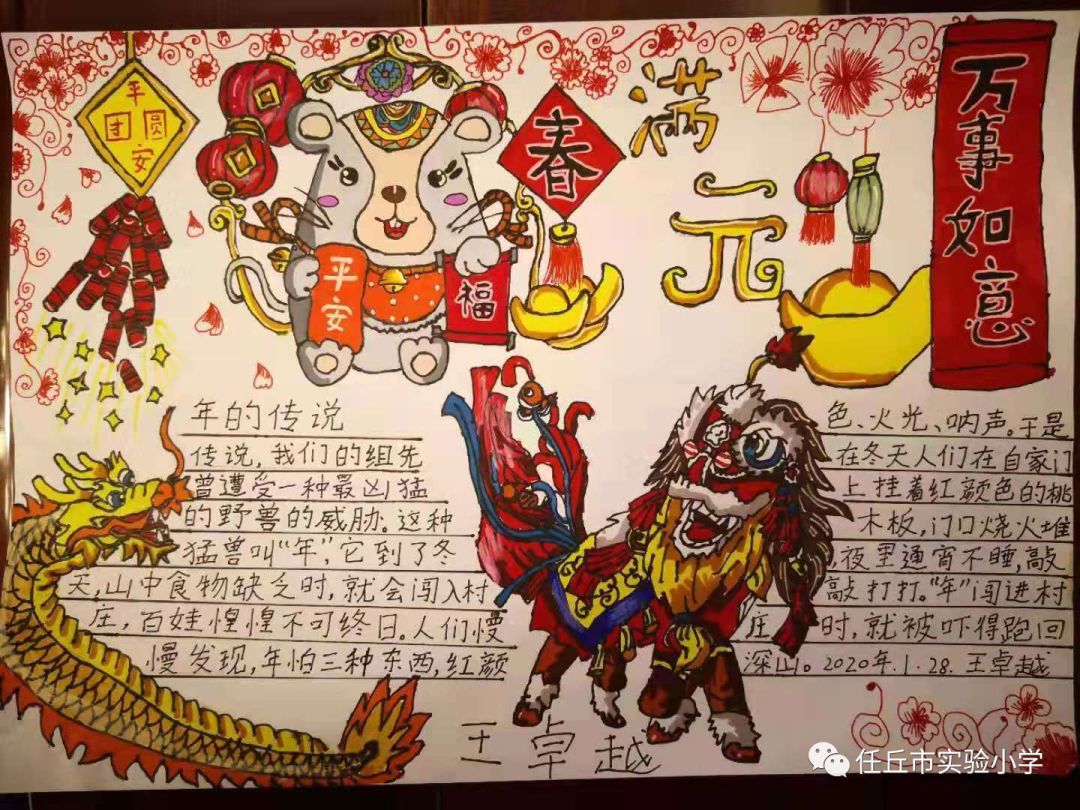 平
团圆
安
春
满
元
万事如意
平安
福
年的传说
传说，我们的组先
曾遭受一种最凶猛
的野兽的威胁。这种
猛兽叫“年”，它到了冬
天，山中食物缺乏时，就会闯入村
庄，百娃惶惶不可终日。人们慢
慢发现，年怕三种东西，红颜
色、火光、呐声。于是
在冬天人们在自家门
上挂着红颜色的桃
木板，门口烧火堆
，夜里通宵不睡，敲
敲打打。“年”闯进村
庄时，就被吓得跑回
深山。2020年.1.28.王卓越
王卓越
任丘市实验小学